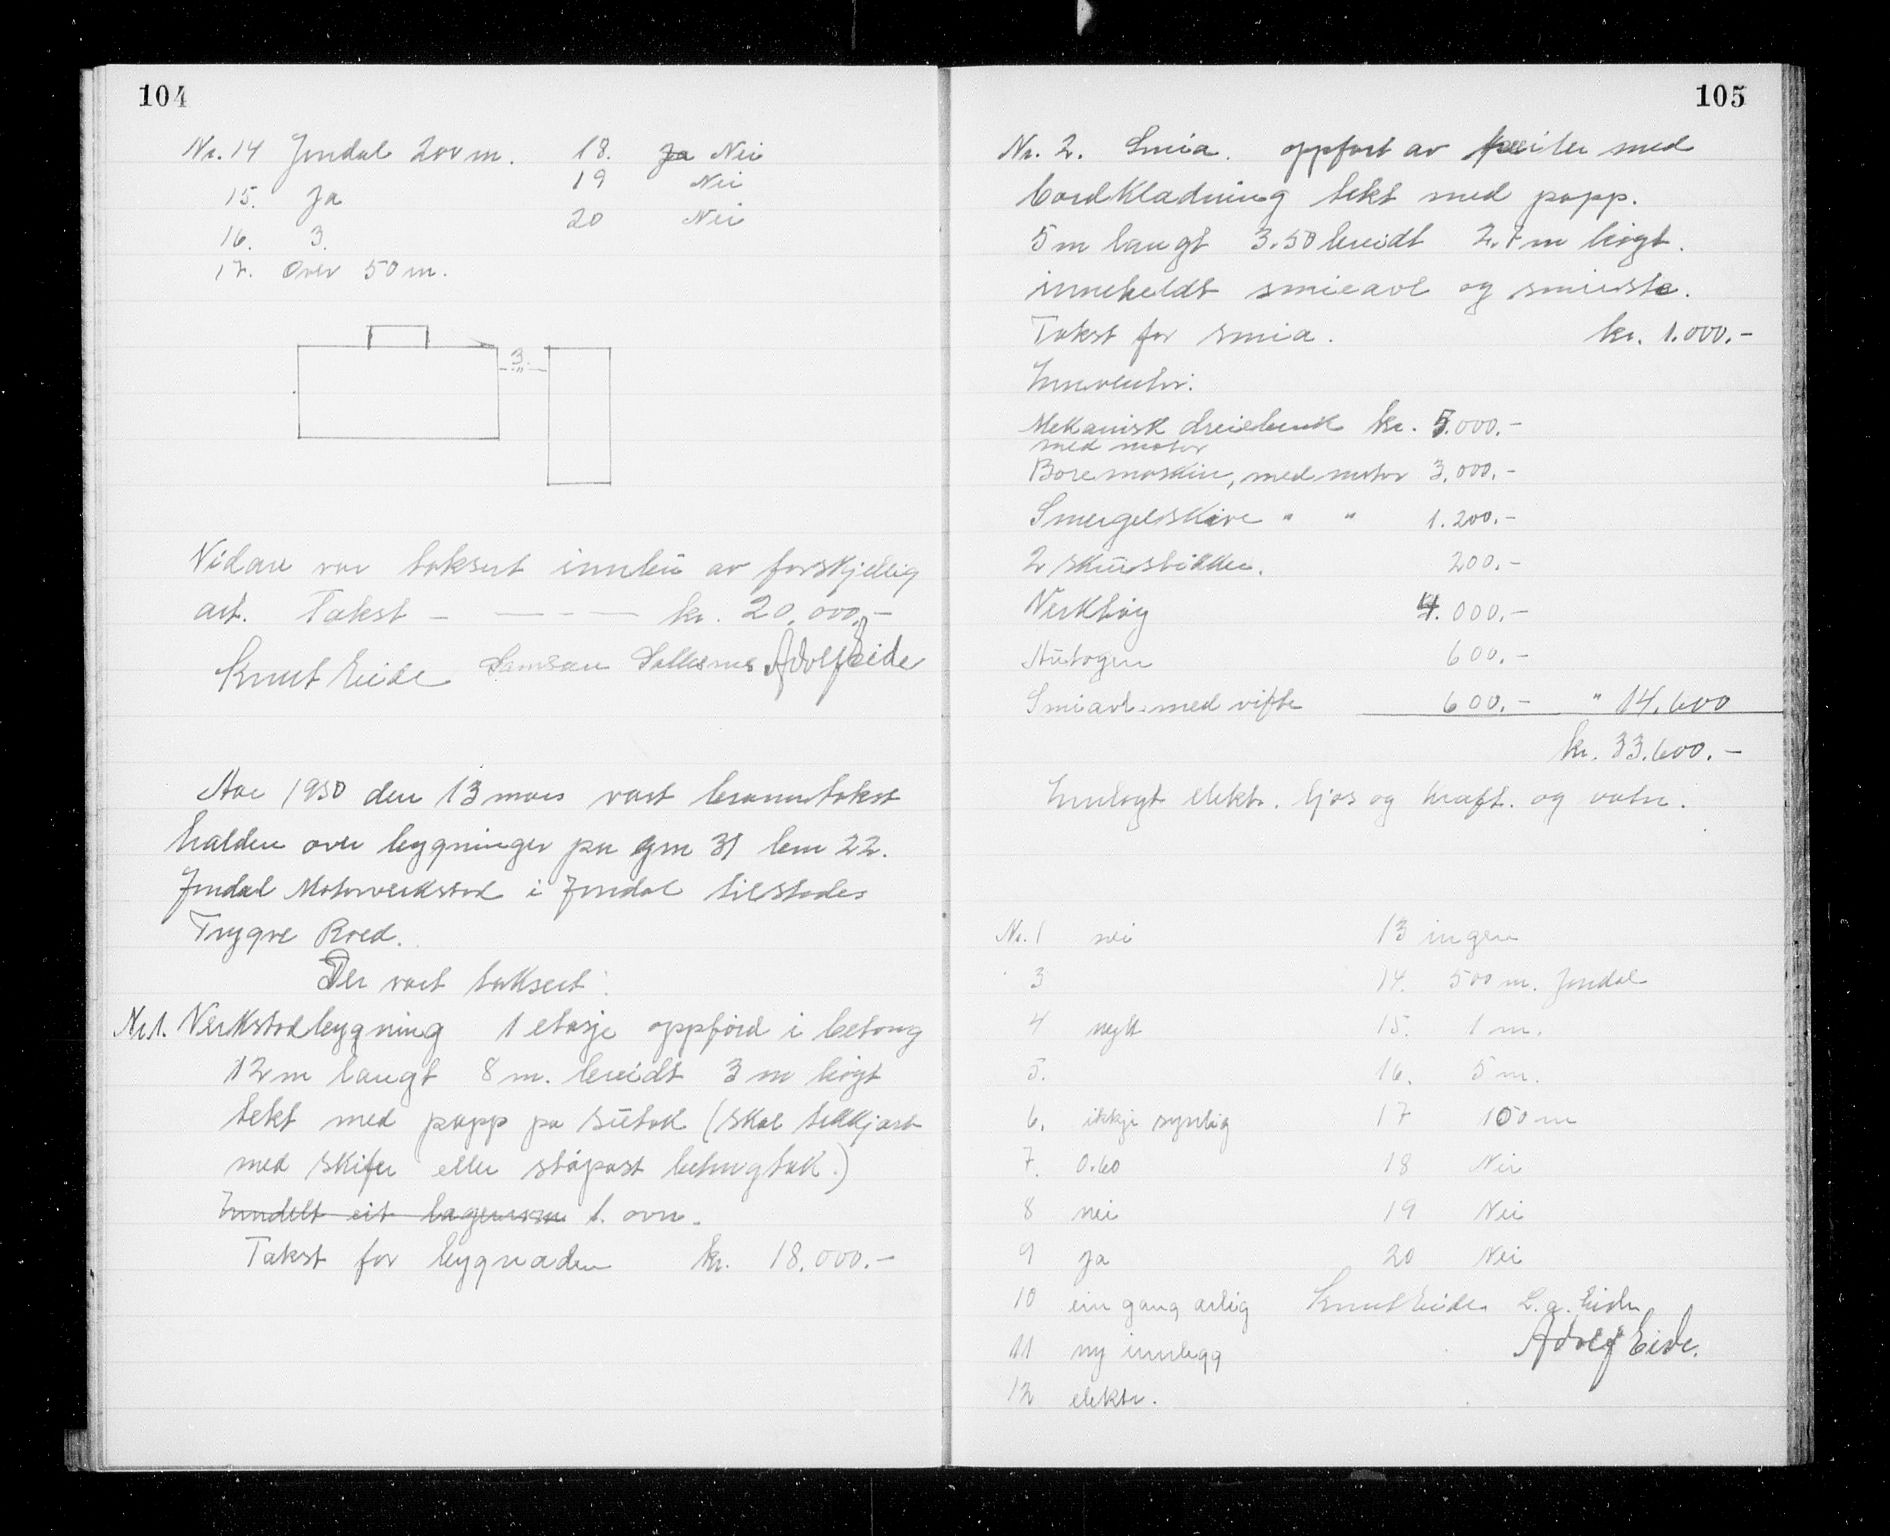 104
Nr. 14 Jondal 200 m. 18. ~~Ja~~ Nei
15. Ja 19 Nei
16. 3. 20 Nei
17. Over 50 m.
3. m
Vidare var taksert innbu av forskjellig
art. Takst — — — — kr. 20.000,-
Knut Eide Samson Adolf Eide
Aar 1950 den 13 mars vart branntakst
halden over bygninger pa gm 31 bm 22.
Jondal Motorverkstad i Jondal tilstades
Trygve Roed.
Der vart taksert:
Nr 1. Verkstadbygning 1 etasje oppførd i betong
12 m langt 8 m. breidt 3 m høgt
tekt med papp pa sutak (skal tekkjast
med skifer eller støpast betongtak.)
~~Inndelt eit lagerrom~~ 1. ovn.
Takst for bygnaden kr. 18.000.-
105
Nr. 2. Smia. oppført av med
bordkladning tekt med papp.
5 m langt 3.50 breidt 2.7 m høgt.
inneheldt smieavl og smieste.
Takst for smia. kr. 1.000.-
Innventar:
Mekanisk dreiebenk kr. 5.000.-
med motor
Boremaskin, med motor 3.000.-
Smergelskive " " 1.200.-
2 skruestikker. 200.-
Verktøy 4.000.-
Autogen 600.-
Smiavl. med vifte 600.- " 14.600
kr. 33.600.-
Innlagt elektr. ljos og kraft. og vatn.
Nr. 1 nei 13 ingen
3 14. 500 m. Jondal
4 nytt 15. 1 m.
5. 16. 5 m.
6. ikkje synlig 17 100 m
7. 0.60 18 Nei
8 nei 19 Nei
9 ja 20 Nei
10 ein gang arlig Knut Eide. L. a. Eide
11 ny innlegg Adolf Eide.
12 elektr.